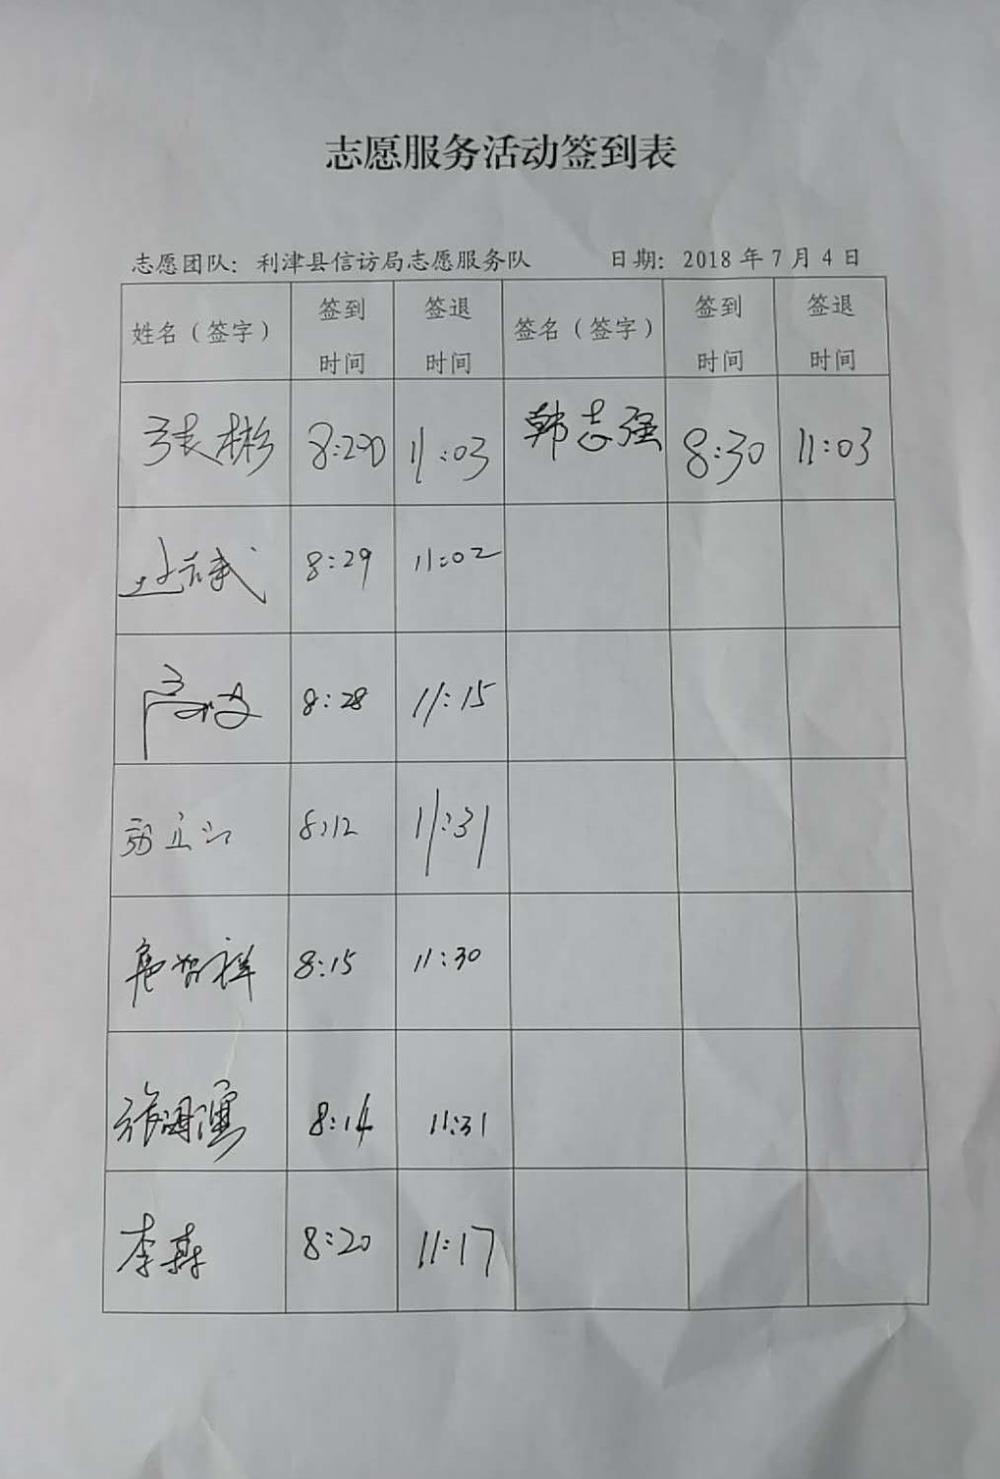 志愿服务活动签到表
志愿团队：利津县信访局志愿服务队 日期：2018 年 7 月 4 日
姓名（签字） 签到时间 签退时间 签名（签字） 签到时间 签退时间
张彬 11:03 韩志强 8:30 11:03
8:29 11:02
8:28 11:15
8:12 11:31
8:15 11:30
8:14 11:31
8:20 11:17